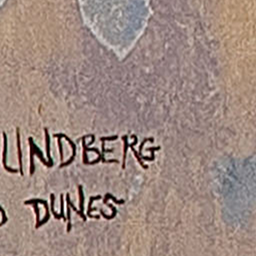 LINDBERG
DUNES